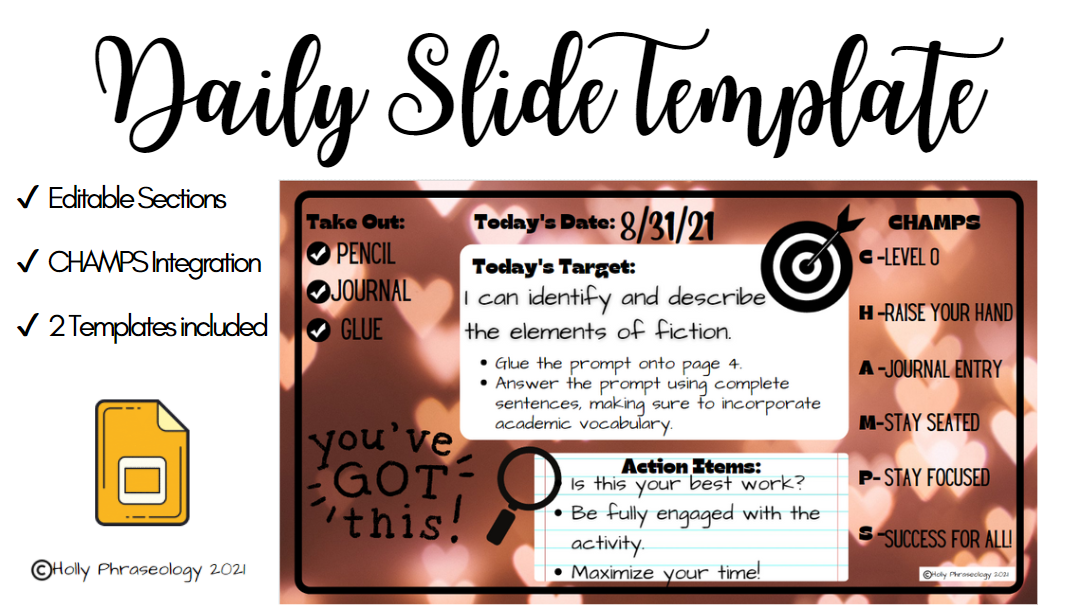 Daily Slide Template
✓ Editable Sections
✓ CHAMPS Integration
✓ 2 Templates included
©Holly Phraseology 2021
Take Out:
PENCIL
JOURNAL
GLUE
you've
GOT
this!
Today's Date: 8/31/21
Today's Target:
I can identify and describe
the elements of fiction.
• Glue the prompt onto page 4.
• Answer the prompt using complete
sentences, making sure to incorporate
academic vocabulary.
Action Items:
• Is this your best work?
• Be fully engaged with the
activity.
• Maximize your time!
CHAMPS
C -LEVEL 0
H -RAISE YOUR HAND
A -JOURNAL ENTRY
M-STAY SEATED
P- STAY FOCUSED
S -SUCCESS FOR ALL!
©Holly Phraseology 2021